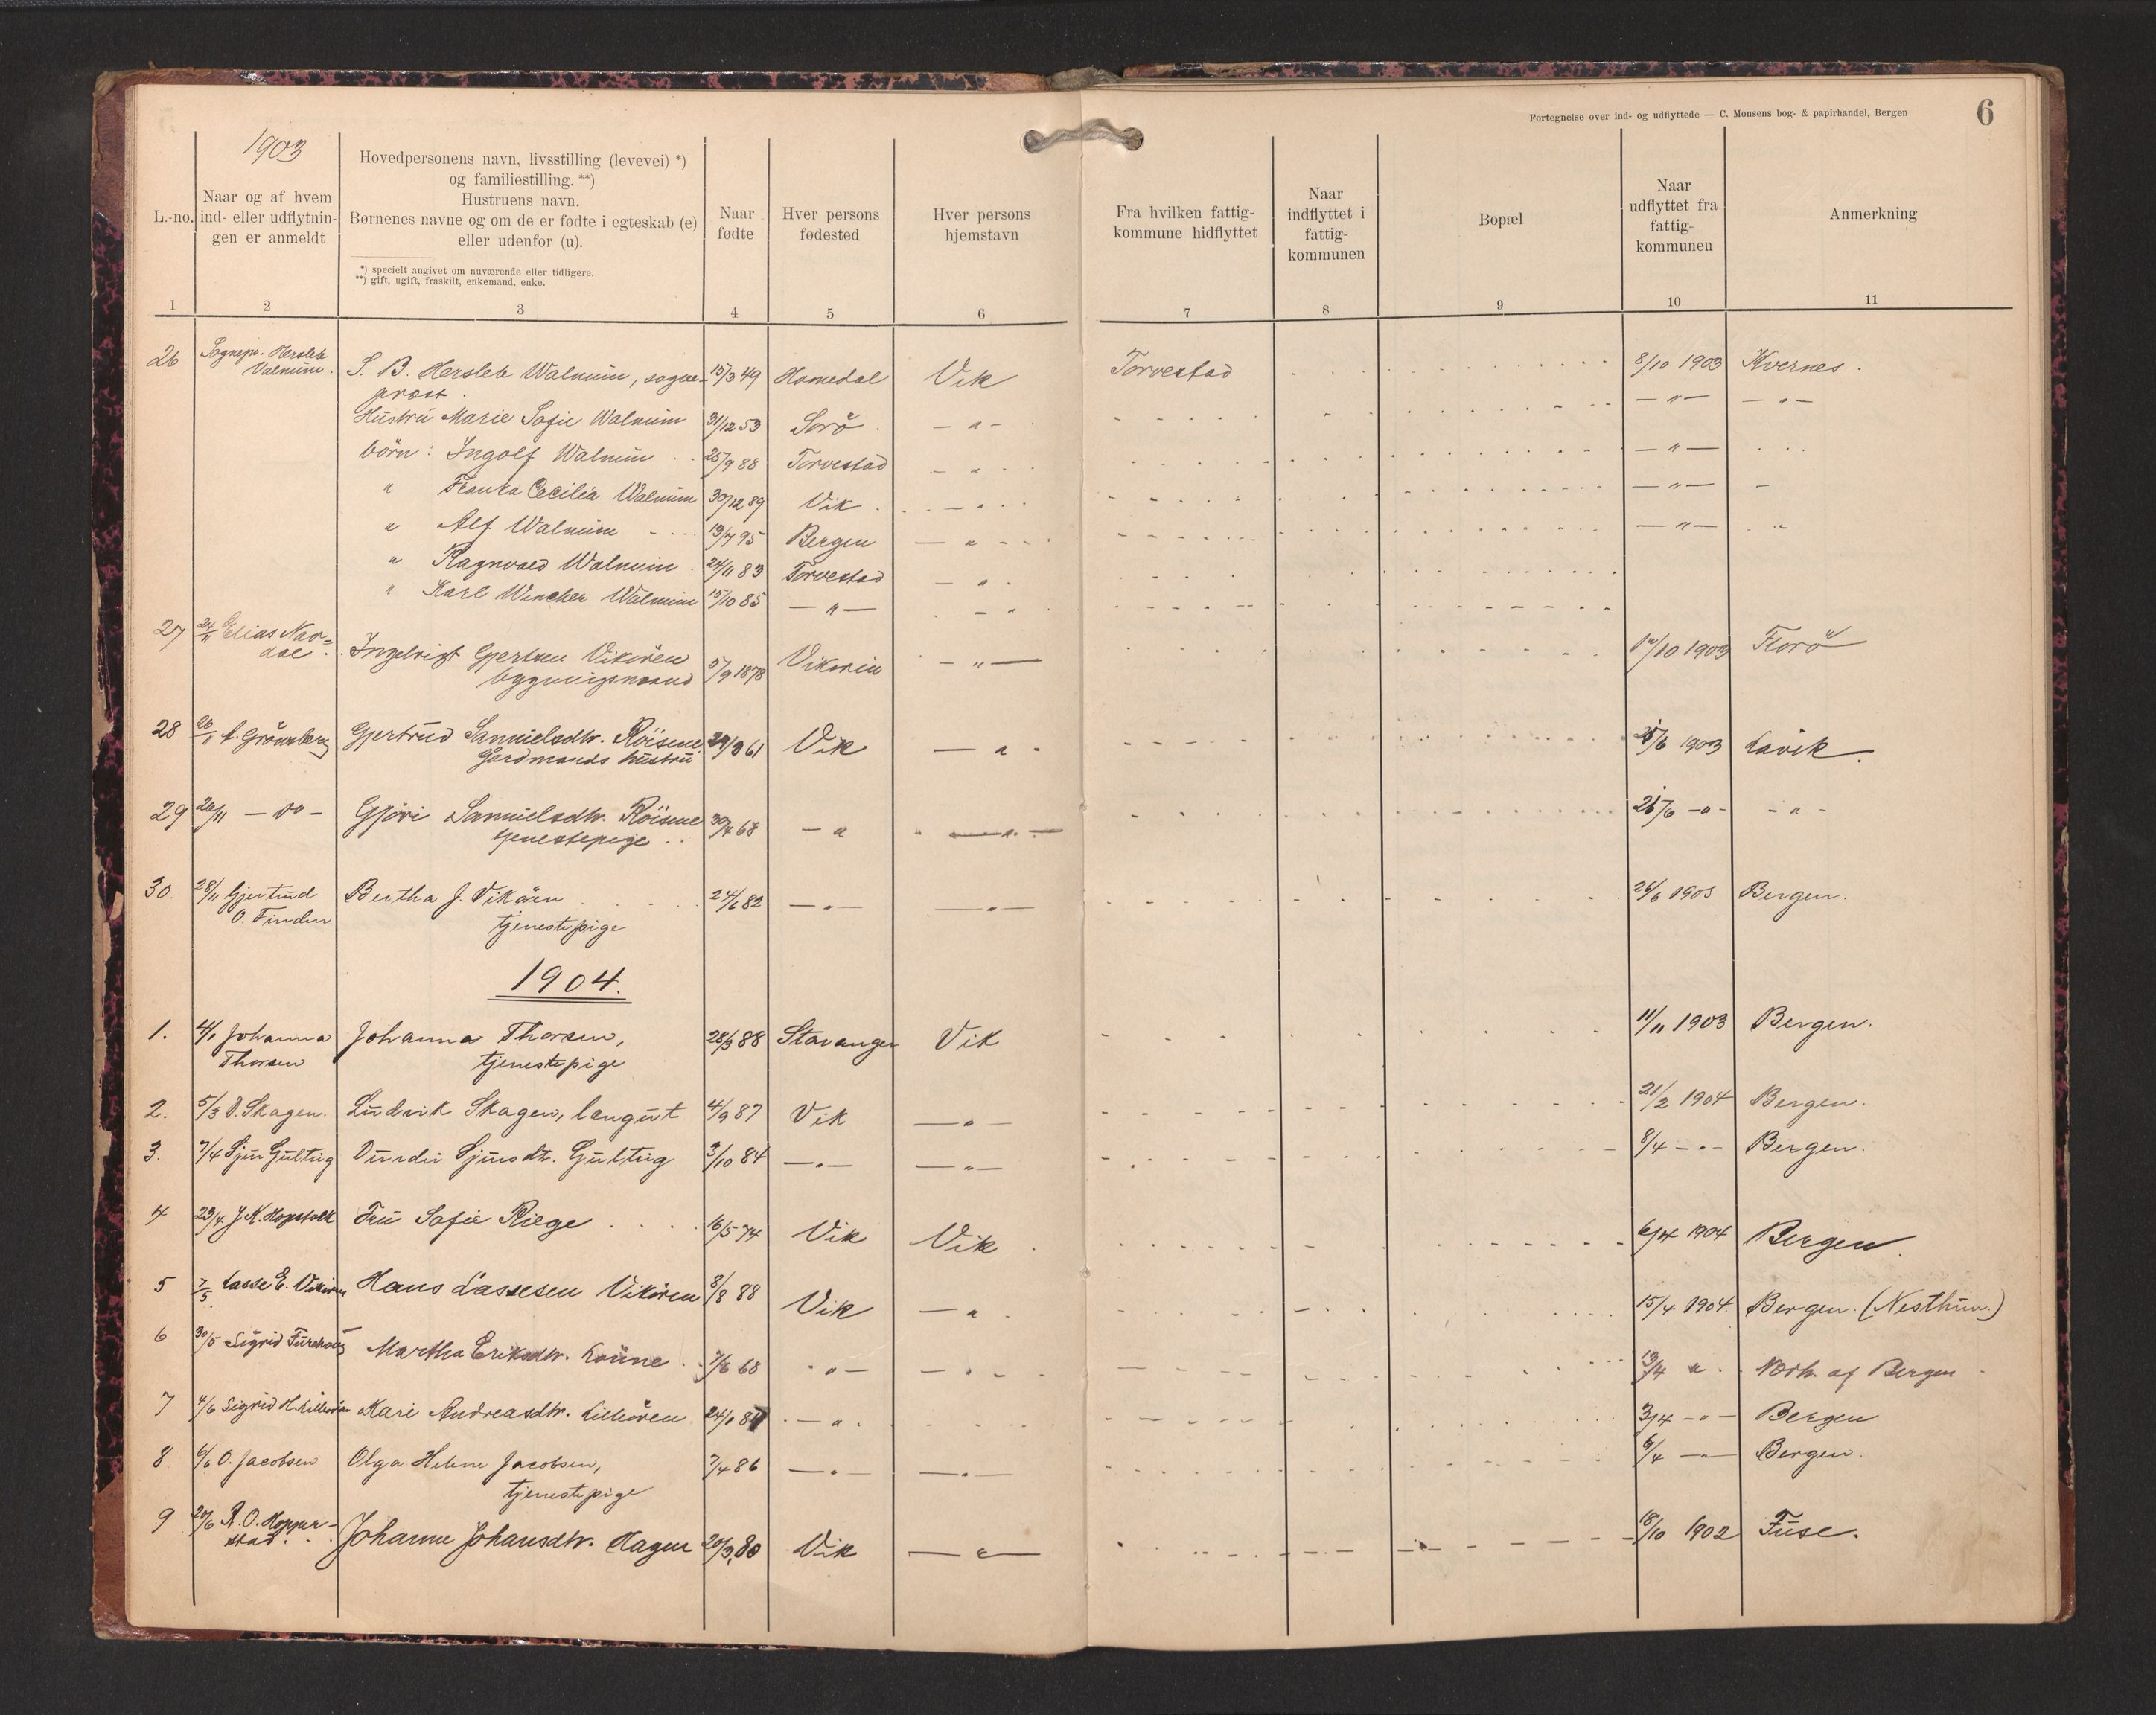 Fortegnelse over ind- og udflyttede — C. Monsens bog- & papirhandel, Bergen
6
1903
L.-no.
Naar og af hvem
ind- eller udflytnin-
gen er anmeldt
Hovedpersonens navn, livsstilling (levevei) *)
og familiestilling. **)
Hustruens navn.
Børnenes navne og om de er fødte i egteskab (e)
eller udenfor (u).
*) specielt angivet om nuværende eller tidligere.
**) gift, ugift, fraskilt, enkemand, enke.
Naar
fødte
Hver persons
fødested
Hver persons
hjemstavn
Fra hvilken fattig-
kommune hidflyttet
Naar
indflyttet i
fattig-
kommunen
Bopæl
Naar
udflyttet fra
fattig-
kommunen
Anmerkning
1 2 3 4 5 6 7 8 9 10 11
26 Sognepr. Hersleb Walnum. S. B. Hersleb Walnum, sogne- 15/3 49 Homedal Vik Torvestad 8/10 1903 Kvernes.
prest.
Hustru Marie Sofie Walnum 31/12 53 Sorö — " — — " — — " —
börn: Ingolf Walnum 25/9 88 Torvestad — " — — " —
" Cecilia Walnum 30/12 89 Vik — " — — " —
" Alf Walnum 13/7 95 Bergen — " — — " — "
" Ragnvald Walnum 24/11 83 Torvestad — " —
" Karl Wincher Walnum 15/10 85 — " — — " —
27 24/11 Elias Nor-
dal. Ingebrigt Gjertsen Vikören 5/9 1878 Vikören — " — /10 1903 Florö
bygningsmand
28 26/11 A. Grönsberg Gjertrud Samuelsdtr. Röisene 29/3 61 Vik — " — 25/6 1903 Lavik.
Gardmands hustru
29 26/11 — do — Gjöri Samuelsdtr. Röisene 30/4 68 — " — " — 25/6 — " — — " —
tjenestepige
30. 28/11 Gjertrud Bertha J. Vikören 24/6 82 — " — — " — 26/6 1903 Bergen.
O. Finden tjenestepige
1904.
1. 4/1 Johanna Johanna Thorsen, 28/3 88 Stavanger Vik 11/11 1903 Bergen.
Thorsen tjenestepige
2. 5/3 O. Skagen. Ludvik Skagen, læsgut 4/9 87 Vik — " — 21/2 1904 Bergen.
3. 7/4 Sjur Gultug Durdei Sjursdt. Gultug 3/10 84 — " — — " — 8/4 — " — Bergen.
4 23/4 J. K. Hopstock Fru Sofie Riege 16/5 74 Vik Vik 6/4 1904 Bergen.
5 7/5 Lasse E. Vikören Hans Lassesen Vikören 8/8 88 Vik — " 15/4 1904 Bergen. (Nesthun.)
6 30/5 Sigrid Martha Eriksdtr. 7/6 68 " — — " — 13/4 " Nordh. af Bergen
7 4/6 Sigrid H. Lilleören Kari Andreasdtr. Lilleören 24/1 87 — " 3/4 — " — Bergen
8 6/6 O. Jacobsen Olga Helene Jacobsen, 7/4 86 — " — — " — 6/4 — " — Bergen.
tjenestepige
9 20/6 R. O. Hopper-
stad. Johanne Johansdtr. Hagen 20/3 80 Vik — " — 18/10 1902 Fuse.